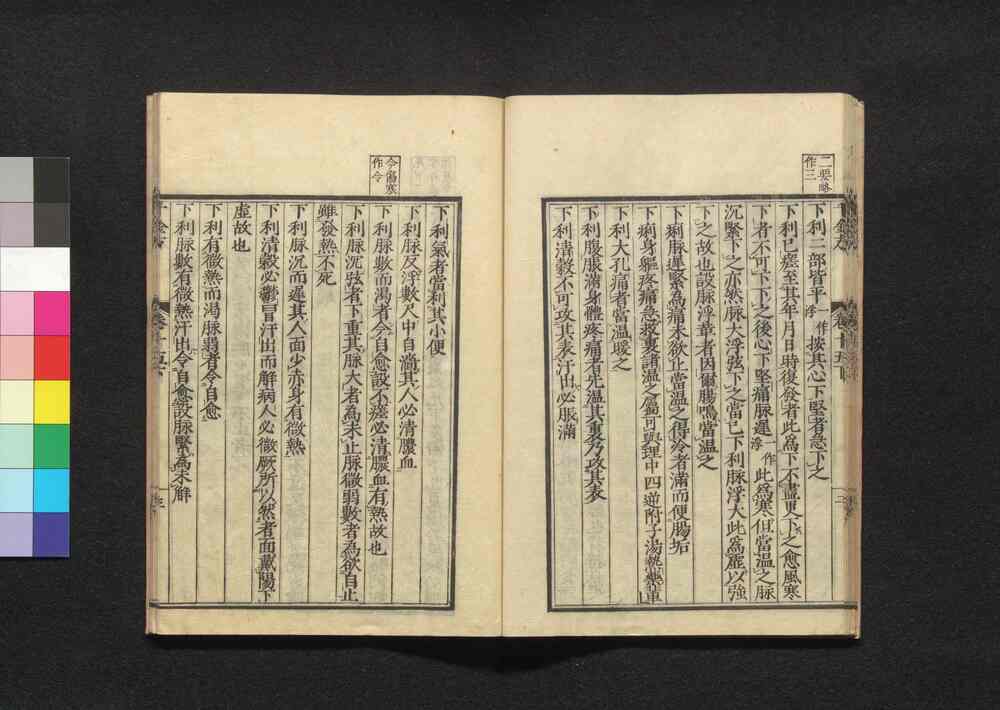 二要略
作三
下利二部皆平一作浮按其心下堅者急下之
下利已瘥至其年月日時復發者此爲下不盡更下之愈風寒
下者不可下下之後心下堅痛脉遲一作浮此爲寒但當溫之脉
沉緊下之亦然脉大浮弦下之當已下利脉浮大此爲虛以強
下之故也設脉浮革者因爾腸鳴當溫之
下利脉遲緊爲痛未欲止當溫之得冷者滿而便腸垢
下利身軀疼痛急救裏諸溫之屬可與理中四逆附子湯熱藥輩
下利大孔痛者當溫暖之
下利腹脹滿身體疼痛者先溫其裏乃攻其表
下利清穀不可攻其表汗出必脹滿
令傷寒
作今
下利氣者當利其小便
下利脉反浮數尺中自濇其人必清膿血
下利脉數而渴者令自愈設不瘥必清膿血有熱故也
下利脉沉弦者下重其脉大者爲未止脉微弱數者爲欲自止
雖發熱不死
下利脉沉而遲其人面少赤身有微熱
下利清穀必鬱冒汗出而解病人必微厥所以然者面戴陽下
虛故也
下利有微熱而渴脉弱者令自愈
下利脉數有微熱汗出令自愈設脉緊爲未解